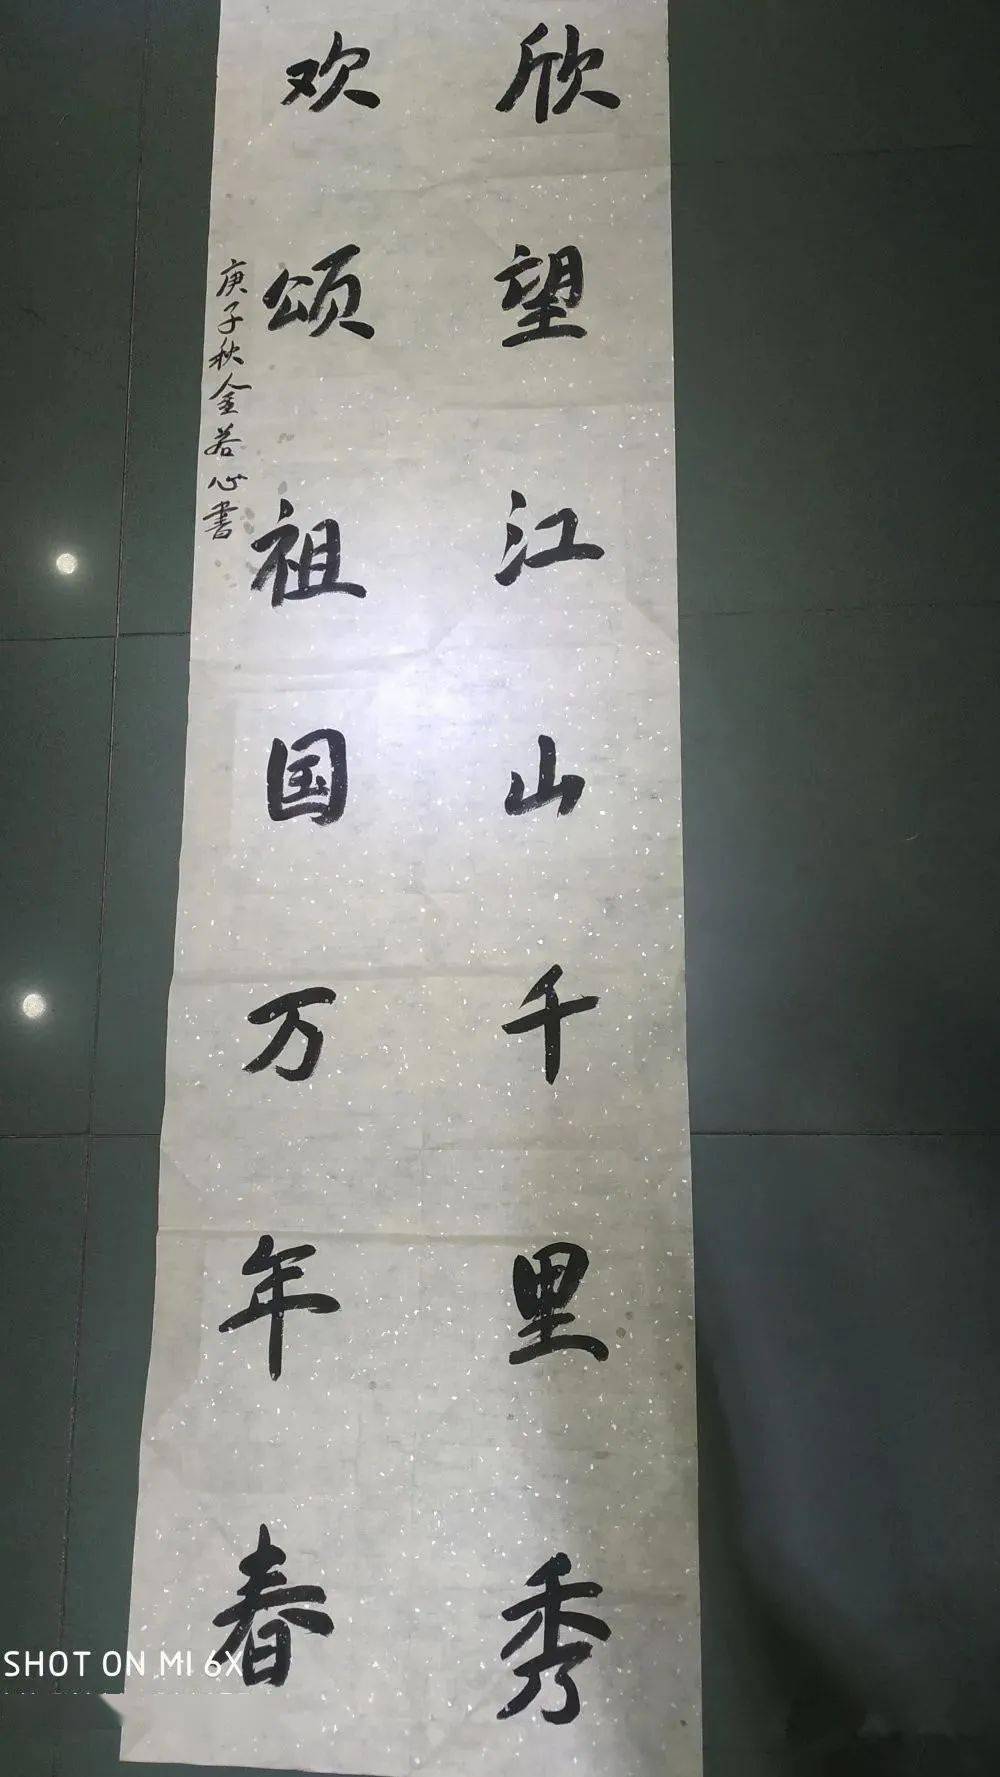 欣望江山千里秀
欢颂祖国万年春
庚子秋金若心书
SHOT ON MI 6X